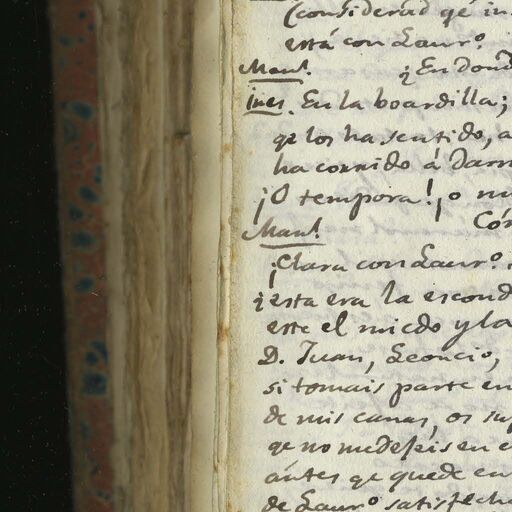 (considerad qe in
está con Laur.º
Man.l ¿En dónd
Ines. En la boardilla;
qe los ha sentido, a
ha corrido á dar
¡O tempora! ¡o m
Man.l Có
¡Clara con Laur.º
¿esta era la escond
este el miedo y la
D. Juan, Leoncio,
si tomais parte en
de mis canas, os su
qe no me dejeis en
ántes qe quede en
de Laur.º satisfech